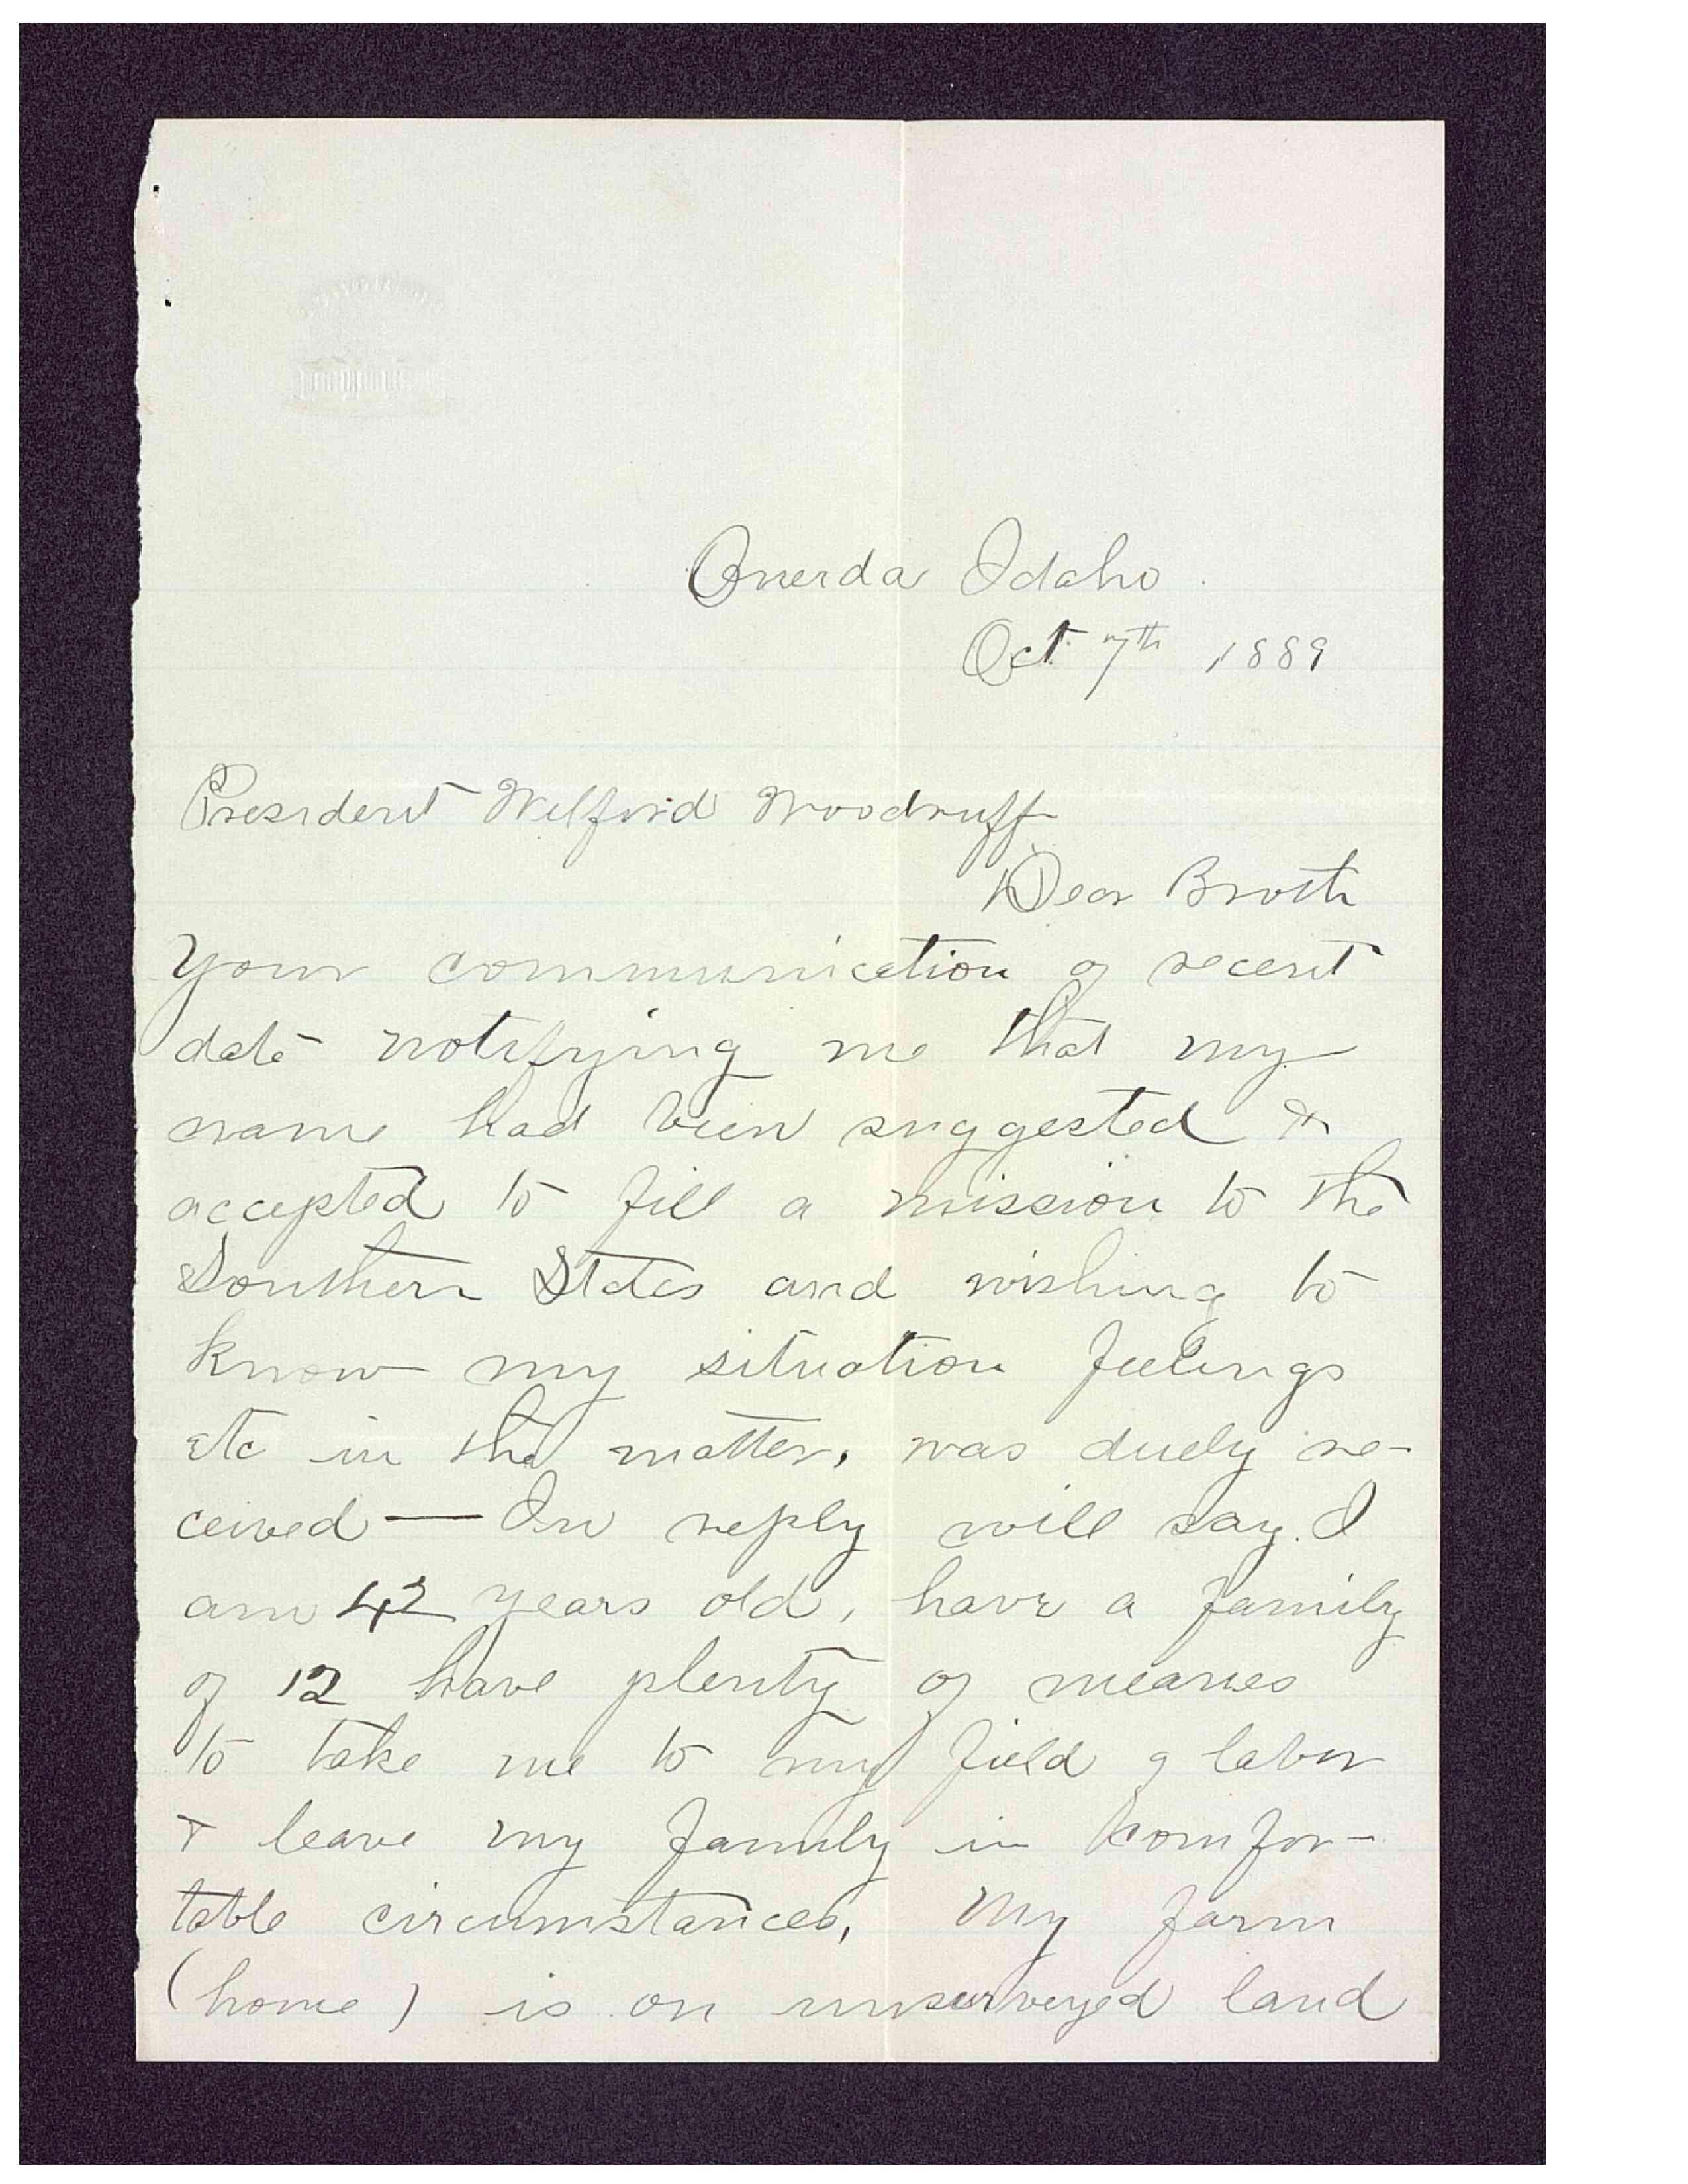 Onerda Idaho
Oct. 7th 1889
President Wilford Woodruff
Dear Broth
Your communication of recent
date notifying me that my
name had been suggested &
accepted to fill a mission to the
Southern States and wishing to
know my situation feelings
etc in the matter, was duely re-
ceived — In reply will say. I
am 42 years old, have a family
of 12 have plenty of meanes
to take me to my field of labor
& leave my family in comfor-
table circumstances, My farm
(home) is on unsurveyed land